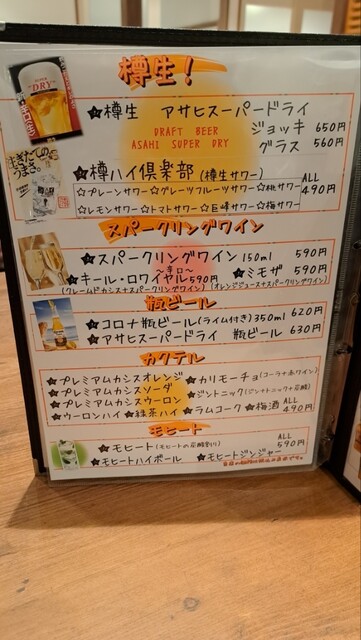 樽生!
☆樽生 アサヒスーパードライ
DRAFT BEER
ASAHI SUPER DRY
ジョッキ 650円
グラス 560円
☆樽ハイ倶楽部 (樽生サワー) ALL
490円
☆プレーンサワー ☆グレープフルーツサワー ☆桃サワー
☆レモンサワー ☆トマトサワー ☆巨峰サワー ☆梅サワー
スパークリングワイン
☆スパークリングワイン 150ml 590円
〜辛口〜
☆キール・ロワイヤル 590円 ☆ミモザ 590円
(クレームドカシス+スパークリングワイン) (オレンジジュース+スパークリングワイン)
瓶ビール
☆コロナ瓶ビール(ライム付き)350ml 620円
☆アサヒスーパードライ 瓶ビール 630円
カクテル
☆プレミアムカシスオレンジ ☆カリモーチョ(コーラ+赤ワイン)
☆プレミアムカシスソーダ ☆ジントニック
☆プレミアムカシスウーロン
☆ウーロンハイ ☆緑茶ハイ ☆ラムコーク ☆梅酒 ALL
490円
モヒート
☆モヒート(モヒートの炭酸割り) ALL
590円
☆モヒートハイボール ☆モヒートジンジャー